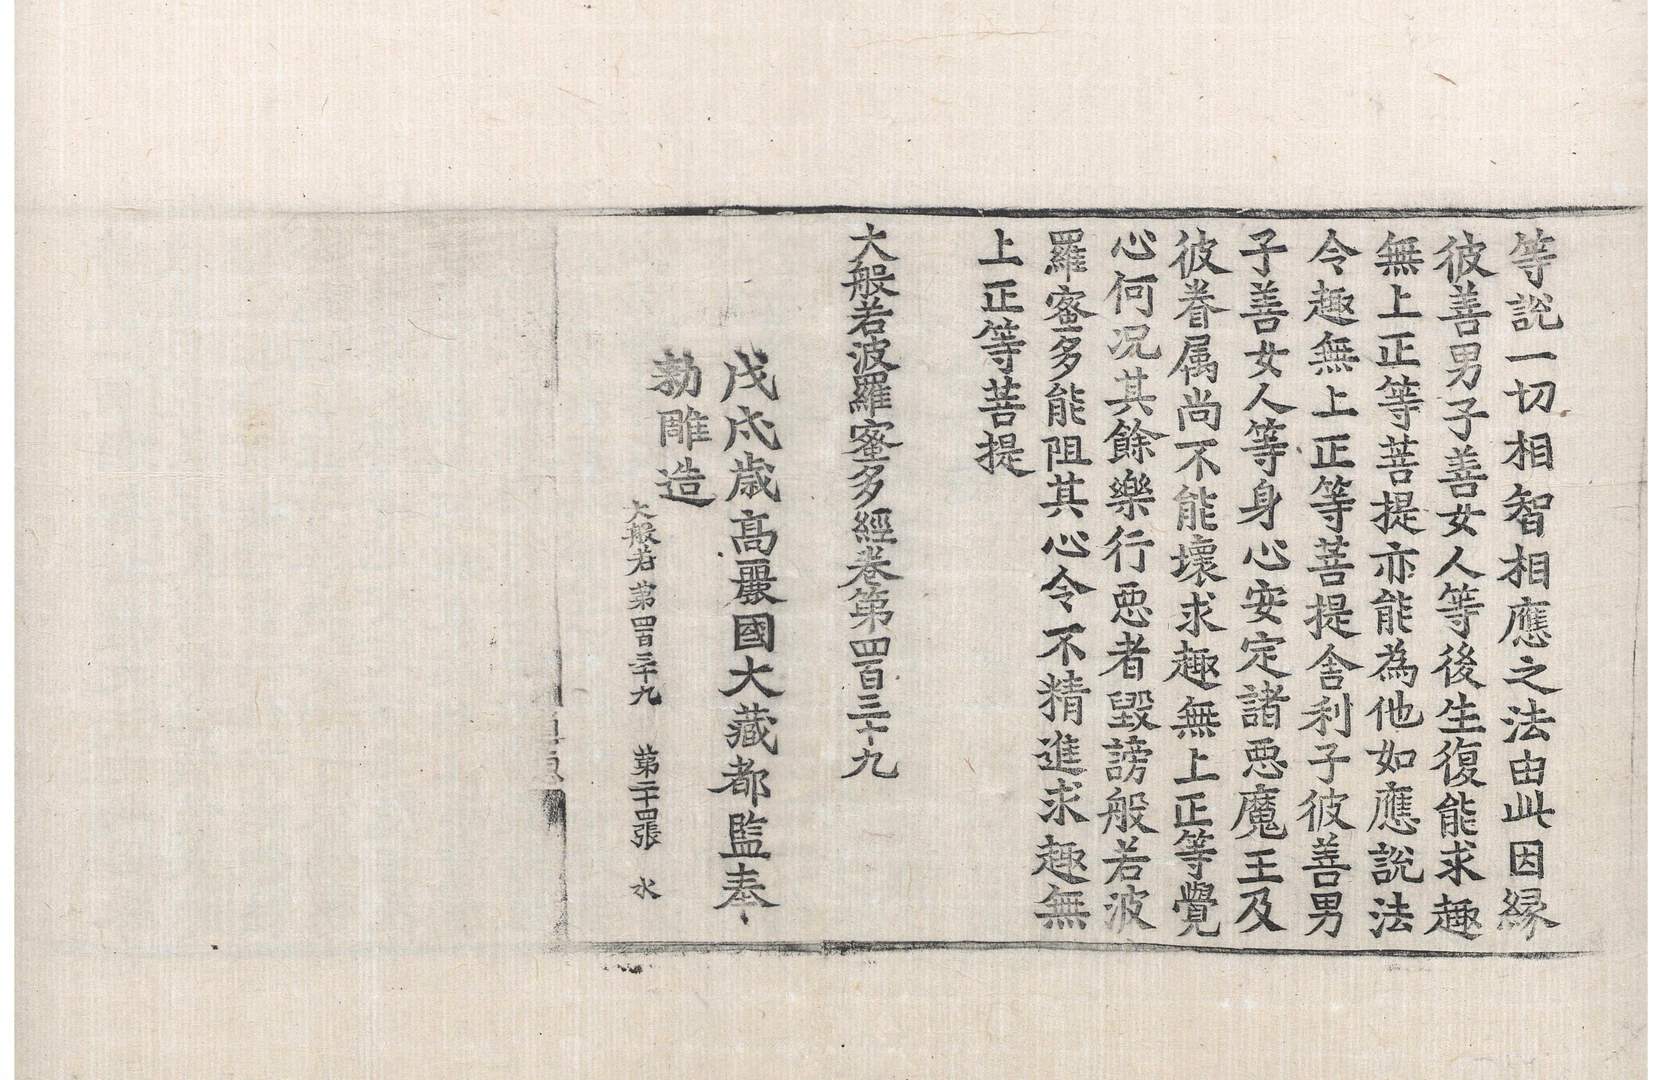 等說一切相智相應之法由此因緣
彼善男子善女人等後生復能求趣
無上正等菩提亦能為他如應說法
令趣無上正等菩提舍利子彼善男
子善女人等身心安定諸惡魔王及
彼眷属尚不能壞求趣無上正等覺
心何況其餘樂行惡者毀謗般若波
羅蜜多能阻其心令不精進求趣無
上正等菩提
大般若波羅蜜多經卷第四百三十九
戊戌歲高麗國大藏都監奉
勅雕造
大般若第四百三十九 第二十四張 水